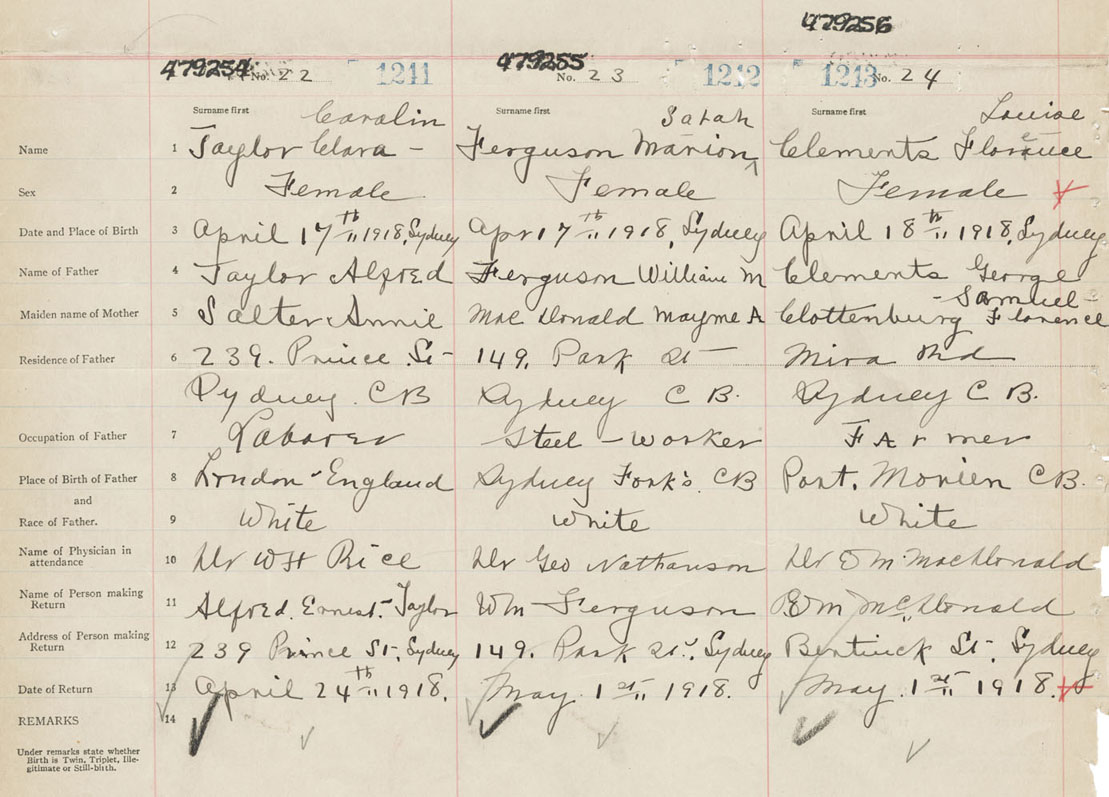 479256
479254 No. 22 1211 479255 No. 23 1212 1213 No. 24
Surname first Carolin Surname first Sarah Surname first Louise -
Name 1 Taylor Clara - Ferguson Marion ^ Clements Florence
Sex 2 Female Female Female
Date and Place of Birth 3 April 17th 1918, Sydney Apr 17th 1918, Sydney April 18th 1918, Sydney
Name of Father 4 Taylor Alfred Ferguson William M Clements George
- Samuel -
Maiden name of Mother 5 Salter Annie Mac Donald Mayme A Clottenburg Florence
Residence of Father 6 239. Prince St- 149. Park St- Mira Rd
Sydney. CB Sydney C B. Sydney C B.
Occupation of Father 7 Laborer Steel - worker Farmer
Place of Birth of Father 8 London - England Sydney Fork's. CB Port. Morien CB.
and
Race of Father. 9 White White White
Name of Physician in attendance 10 Dr WH Rice Dr Geo Nathanson Dr E M. MacDonald
Name of Person making Return 11 Alfred. Ernest- Taylor Wm Ferguson E M McDonald
Address of Person making Return 12 239 Prince St-, Sydney 149. Park St., Sydney Bentinck St-, Sydney
Date of Return 13 April 24th 1918. May. 1st 1918. May. 1st 1918.
REMARKS 14
Under remarks state whether
Birth is Twin, Triplet, Ille-
gitimate or Still-birth.